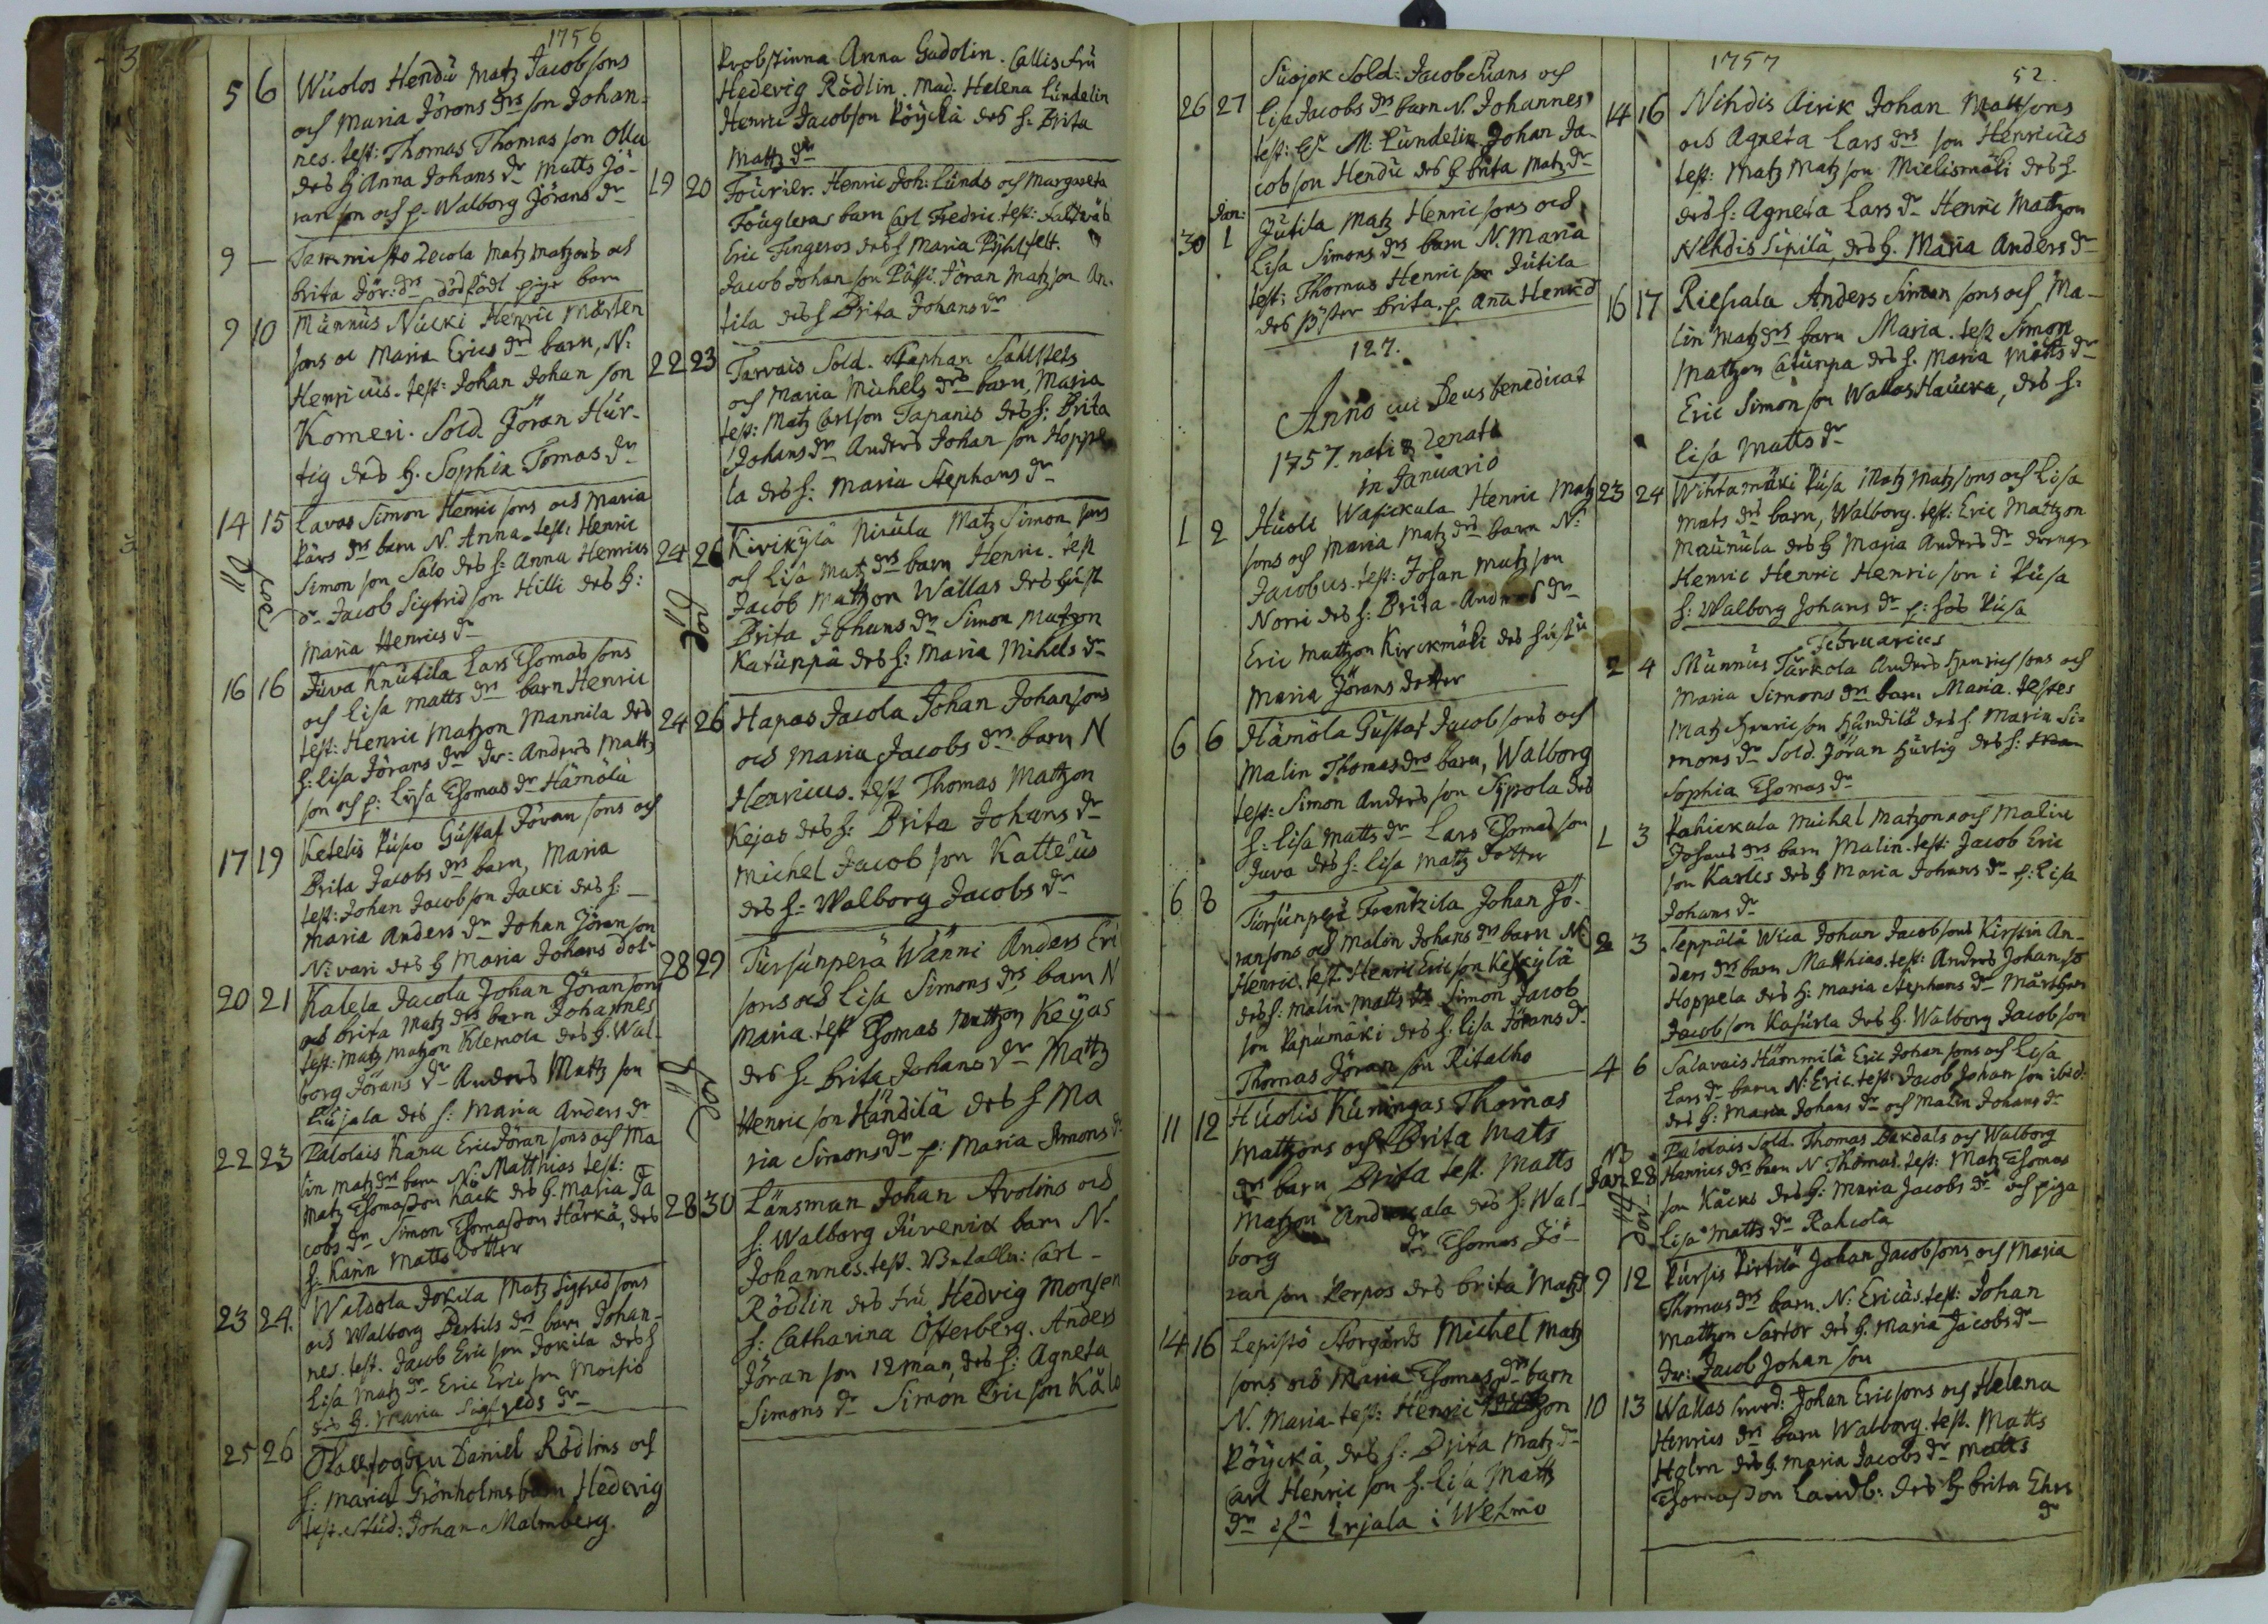 1756
5 6 Wuolos Hendu Matz Jacobsons
och Maria Jörans drs son Johan=
nes. test: Thomas Thomas son Olla
des h Anna Johans dr Matts Jö-
ran son och p. Walborg Jörans dr
9 — Tammisto Zecola Matz Matzons och
brita Jör: drs dödfödt pige barn
9 10 Munnus Nicki Henric Mårten
sons oc Maria Erics drs barn, N:
Henricus. test: Johan Johan son
Komeri. Sold. Jöran Hur-
tig des h. Sophia Tomas dr
14 15 Lavas Simon Henric sons och Maria
Pärs drs barn N. Anna. test: Henric
Simon son Salo des h: Anna Henrics
dr Jacob Sigfrid son Hilli des h:
Maria Henrics dr
16 16 Juva Knutila Lars Thomas sons
och Lisa Matts drs barn Henric
test: Henric Matzon Mannila des
h: Lisa Jörans dr dr: Anders Matts
son och p: Lisa Thomas dr Hämölä
17 19 Ketelis Puso Gustaf Jöran sons och
Brita Jacobs drs barn, Maria
test: Johan Jacobson Jacki des h: —
Maria Anders dr Johan Jöran son
Nivari des h Maria Johans dotr
20 21 Kalela Jacola Johan Jöransons
och brita Matz drs barn Johannes
test: Matz Matzon Klemola des h. Wal-
borg Jörans dr Anders Matz son
Liujala des h: Maria Anders dr
22 23 Palolais Kanu Eric Jöran sons och Ma
lin Matz drs barn N: Matthias test:
Matz Thomasson Käck des h. Maria Ja
cobs dr Simon Thomasson Härkä, des
h: Karin Matts Dotter
23 24. Waldola Jokila Matz Sigfred sons
och Walborg Bertils drs barn Johan-
nes. test. Jacob Eric son Jokila des h
Lisa Matz dr Eric Eric son Moisio
des h. Maria Sigfreds dr
25 26 Hallfogden Daniel Rödlins och
h: Maria Grönholms barn Hedevig
test. Stud: Johan Malmberg.
Probstinna Anna Gadolin. Callis fru
Hedevig Rödlin. Mad. Helena Lundelin
Henric Jacobson Pöyckä des h: Brita
Mattz dr
19 20 Fourier. Henric Joh: Lunds och Margareta
Fougleras barn Carl Fredric test:
Eric Fingeros des h Maria
Jacob Johan son Pässi. Jöran Matzson An-
tila des h Brita Johans dr
22 23 Tarvais Sold. Staphan Sahlstels
och Maria Michels drs barn, Maria
test: Matz Carlson Tapanis des h: Brita
Johans dr Anders Johan son Hoppe
la des h: Maria Stephans dr
24 26 Kirikylä Nirula Matz Simon sons
och Lisa Matz drs barn Henric. test
Jacob Matzon Wallas des hust
Brita Johans dr Simon Matzon
Katuppä des h: Maria Mihels dr
24 26 Hapas Jacola Johan Johansons
och Maria Jacobs drs barn N
Henricus. test Thomas Matzon
Kejas des h: Brita Johans dr
Michel Jacob son Kattelus
des h: Walborg Jacobs dr
28 29 Tursunperä Wänni Anders Eri
sons och Lisa Simons drs barn N
Maria. test Thomas Mattzon Keyas
des h: Brita Johans dr Mattz
Henric son Händilä des h Ma
ria Simons dr p: Maria Simons dr
28 30 Länsman Johan Avolins och
h: Walborg Juvenia barn N.
Johannes. test. Carl
Rödlin des fru Hedvig Monsen
h: Catharina Österberg. Anders
Jöran son 12 man, des h: Agneta
Simons dr Simon Ericson Kålo
Suojok Sold: Jacob Suans och
26 27 Lisa Jacobs drs barn N. Johannes
test: M. Lundelin Johan Ja-
cobson Hendu des h brita Matz dr
Jan:
30 1 Jutila Matz Henricsons och
Lisa Simons drs barn N. Maria
test: Thomas Henric son Jutila
des syster Brita. p. Anna Henricd
127.
Anno cui Deus benedicat
1757. nati & renati
in Januario
1 2 Huoli Wasickala Henric Matz
sons och Maria Matz drs barn N:
Jacobus. test: Johan Matz son
Norri des h: Brita Anders dr
Eric Mattzon Kirckmäki des hustru
Maria Jörans dotter
6 6 Hämölä Gustaf Jacobsons och
Malin Thomas drs barn, Walborg
test: Simon Anders son Sypola des
h: Lisa Matts dr Lars Thomas son
Juva des h: Lisa Matz dotter
6 8 Tursunperä Frantzila Johan Jö-
ransons och Malin Johans drs barn N:
Henric. test: Henric Ericson Keskylä
des h: Malin Matts dr Simon Jacob
son Papumäki des h. Lisa Jörans dr
Thomas Jöran son Ritalho
11 12 Huolis Kuningas Thomas
Mattzons och Brita Mats
drs barn Brita test. Matts
Matzon Andrekala des h: Wal-
borg dr Thomas Jö-
ran son Perpos des brita Matz
14 16 Lepistö Storgårds Michel Matz
sons och Maria Thomas drs barn
N. Maria. test: Henric Matzon
Pöyckä, des h: Brita Matz dr
Carl Henric son h. Lisa Matts
dr Erjala i Wehmo
1757
52.
14 16 Nihdis Airik Johan Mattsons
och Agneta Lars drs son Henricus
test: Matz Matz son Mielismäki des h
des h: Agneta Lars dr Henric Mattzon
Nihdis Sipilä, des h. Maria Anders dr
16 17 Riesvala Anders Simon sons och Ma-
lin Matz drs barn Maria. test Simon
Mattzon Catunpa des h. Maria Matts dr
Eric Simon son Wallas Haucka, des h:
Lisa Matts dr
23 24 Wihtamäki Pusa Matz Matzsons och Lisa
Mats drs barn, Walborg. test: Eric Mattzon
Maunula des h Maria Anders dr drengr
Henric Henric Henric son i Pusa
h: Walborg Johans dr p: hos Pusa
Februarius
2 4 Munnus Turkola Anders Henrichsons och
Maria Simons drs barn Maria. testes
Matz Henric son Händilä des h. Maria Si=
mons dr Sold. Jöran Hurtig des h:
Sophia Thomas dr
1 3 Rahickala Michel Matzons och Malin
Johans drs barn Malin. test: Jacob Eric
son Karlis des h Maria Johans dr p: Lisa
Johans dr
2 3 Seppälä Wica Johan Jacobsons Kirstin An-
ders drs barn Matthias. test: Anders Johanso
Hoppela des h: Maria Stephans dr Mårthen
Jacobson Kafurla des h. Walborg Jacobson
4 6 Salavais Hämmilä Eric Johan sons och Lisa
Lars dr barn N: Eric. test: Jacob Johan son ibid:
des h: Maria Johans dr och Malin Johans dr
NB
Jan 28 Palolais Sold. Thomas Dahdals och Walborg
Henrics drs barn N Thomas. test: Matz Thomas
son Käcks des h: Maria Jacobs dr och piga
Lisa Matts dr Rahcola
9 12 Pursis Pirtilä Johan Jacobsons och Maria
Thomas drs barn. N: Ericus. test: Johan
Mattzon Sartor des h. Maria Jacobs dr
dr: Jacob Johan son
10 13 Wallas Johan Ericsons och Helena
Henrics drs barn Walborg. test. Matts
Holm des h. Maria Jacobs dr Matts
Thomasson Landb: des h brita Ehrs
dr